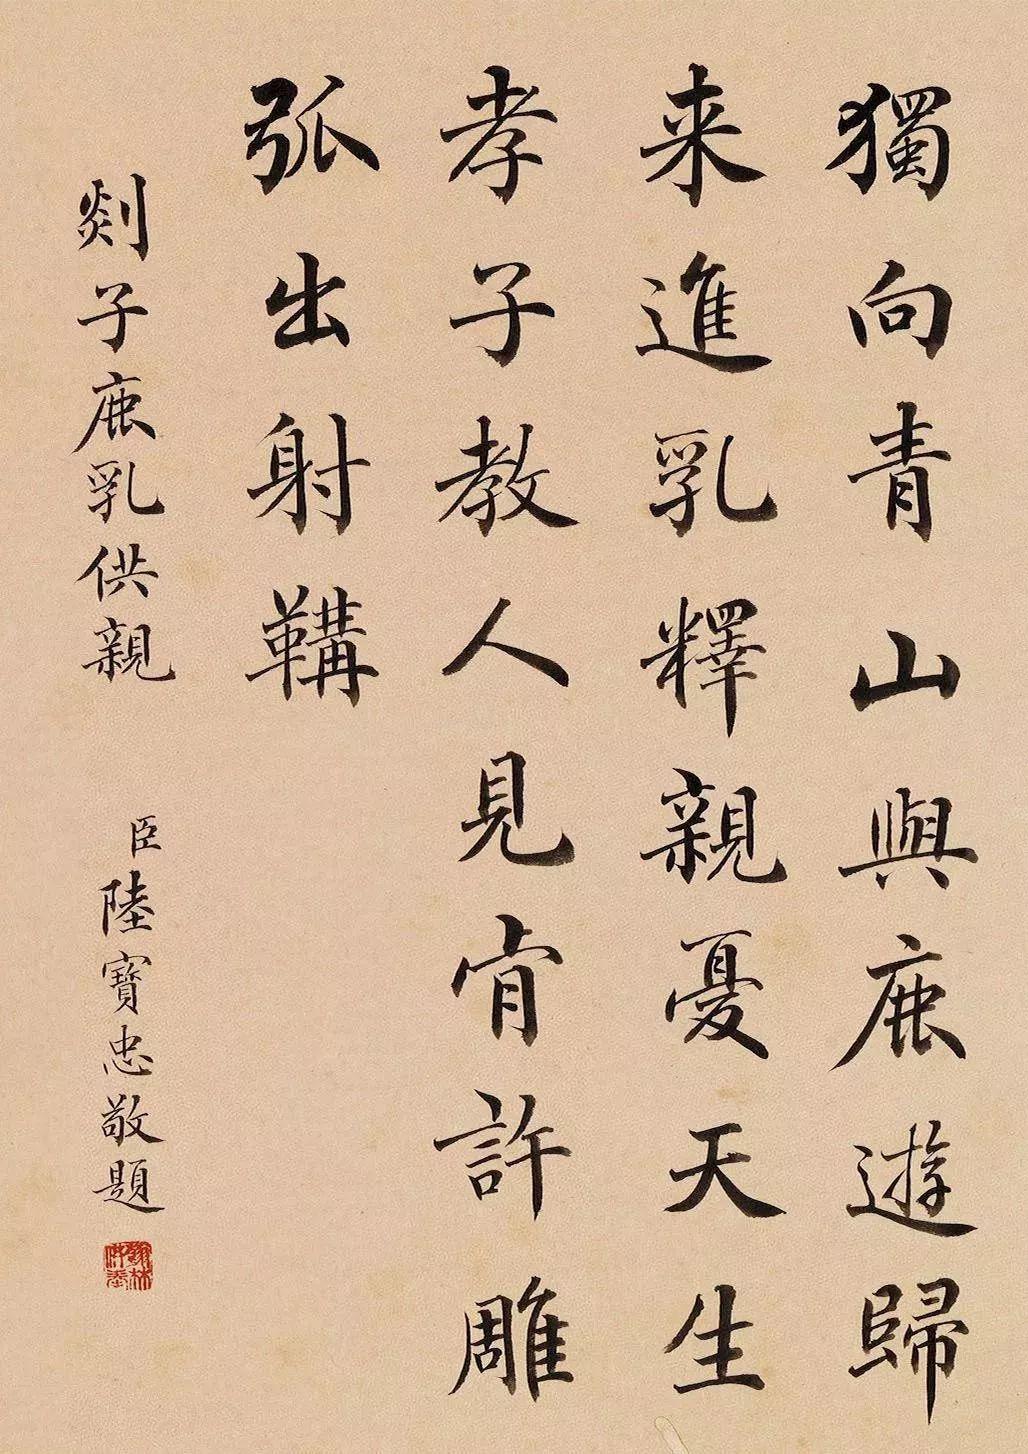 獨向青山與鹿遊歸
来進乳釋親憂天生
孝子教人見肯許雕
弧出射鞲
剡子鹿乳供親
臣陸寶忠敬題